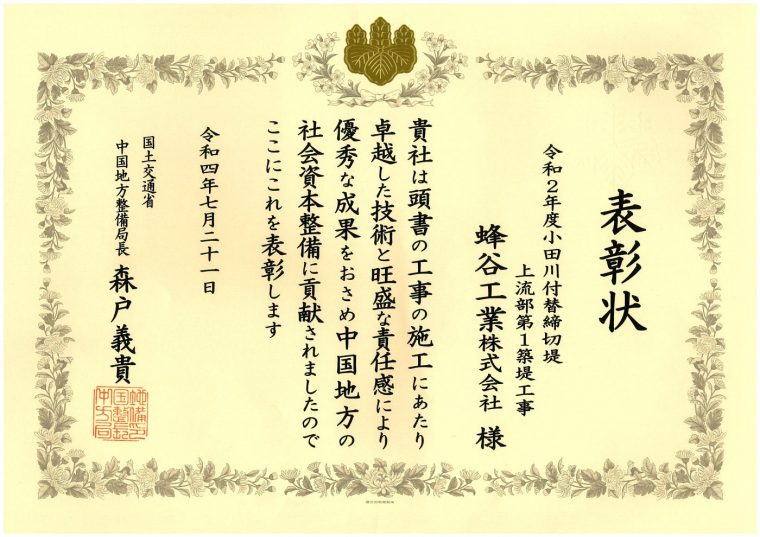 表彰状
令和２年度小田川付替締切堤
上流部第１築堤工事
蜂谷工業株式会社 様
貴社は頭書の工事の施工にあたり
卓越した技術と旺盛な責任感により
優秀な成果をおさめ中国地方の
社会資本整備に貢献されましたので
ここにこれを表彰します
令和四年七月二十一日
国土交通省
中国地方整備局長 森戸義貴